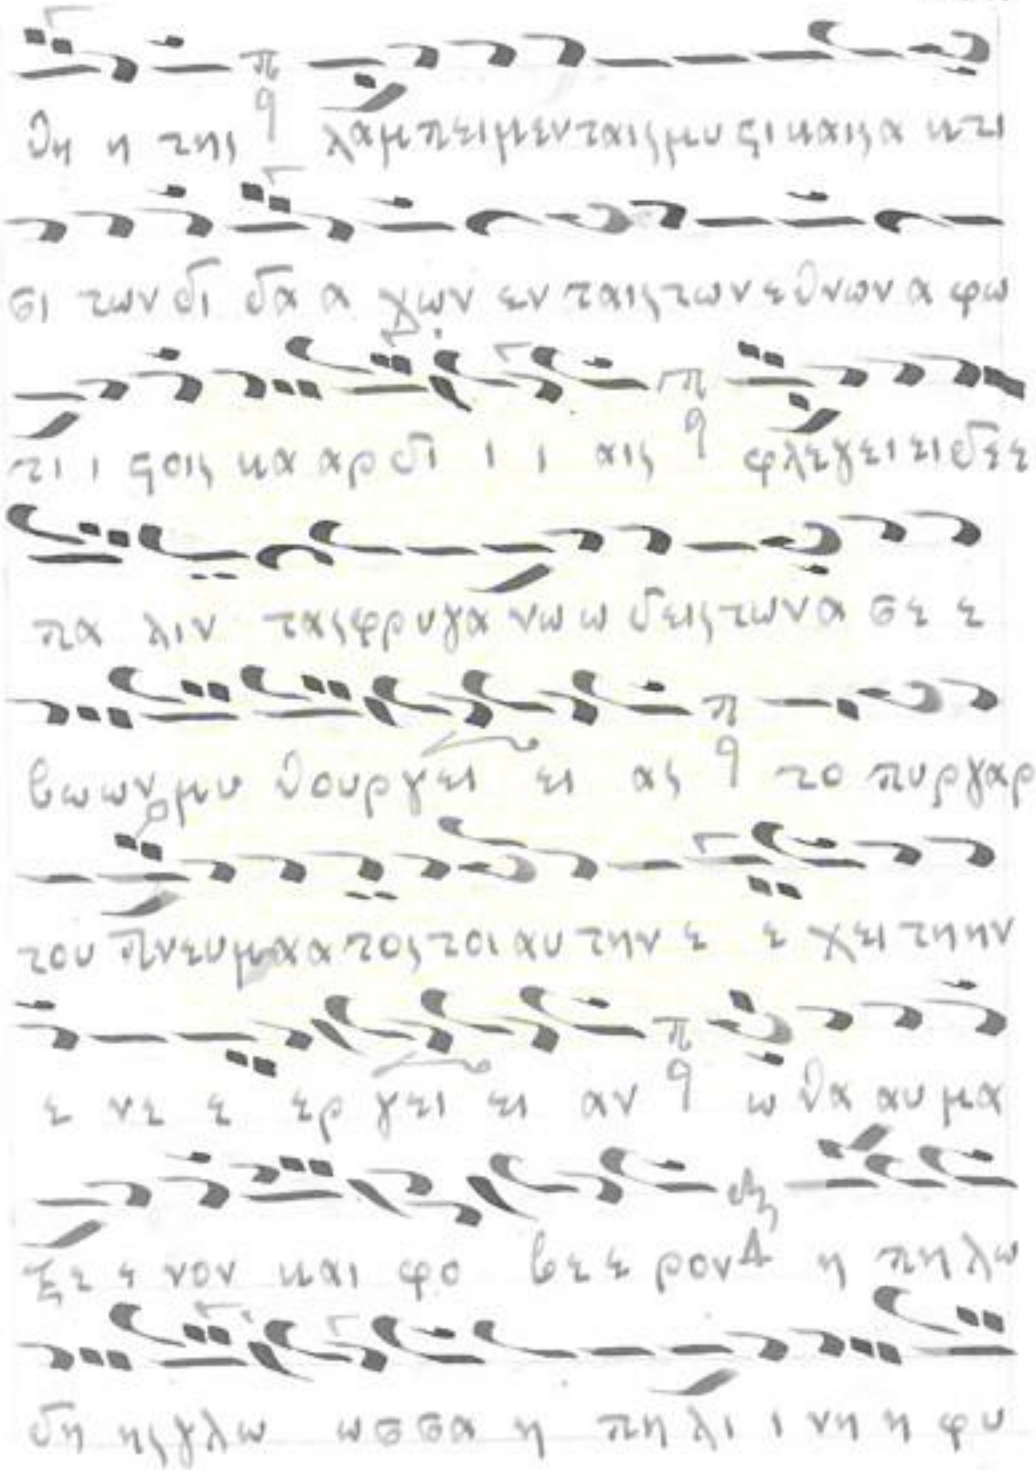 θη η της π λαμπει μεν ταις μυ ζι και σα κτι
σι των δι δα α χων εν ταις των εθνων α φω
τι ι ζοις κα αρ δι ι ι αις π φλεγει ει δε ε
πα λιν τας φρυγα νω ω δεις των α σε ε
βω ων μυ θουργει ει ας π το πυρ γαρ
του πνευμα α τος τοι αυ την ε ε χει τη ην
ε νε ε ερ γει ει αν π ω θα αυ μα
ξε ε νον και φο βε ε ρον Δ η πη λω
δη ης γλω ωσσα η πη λι ι νη η φυ